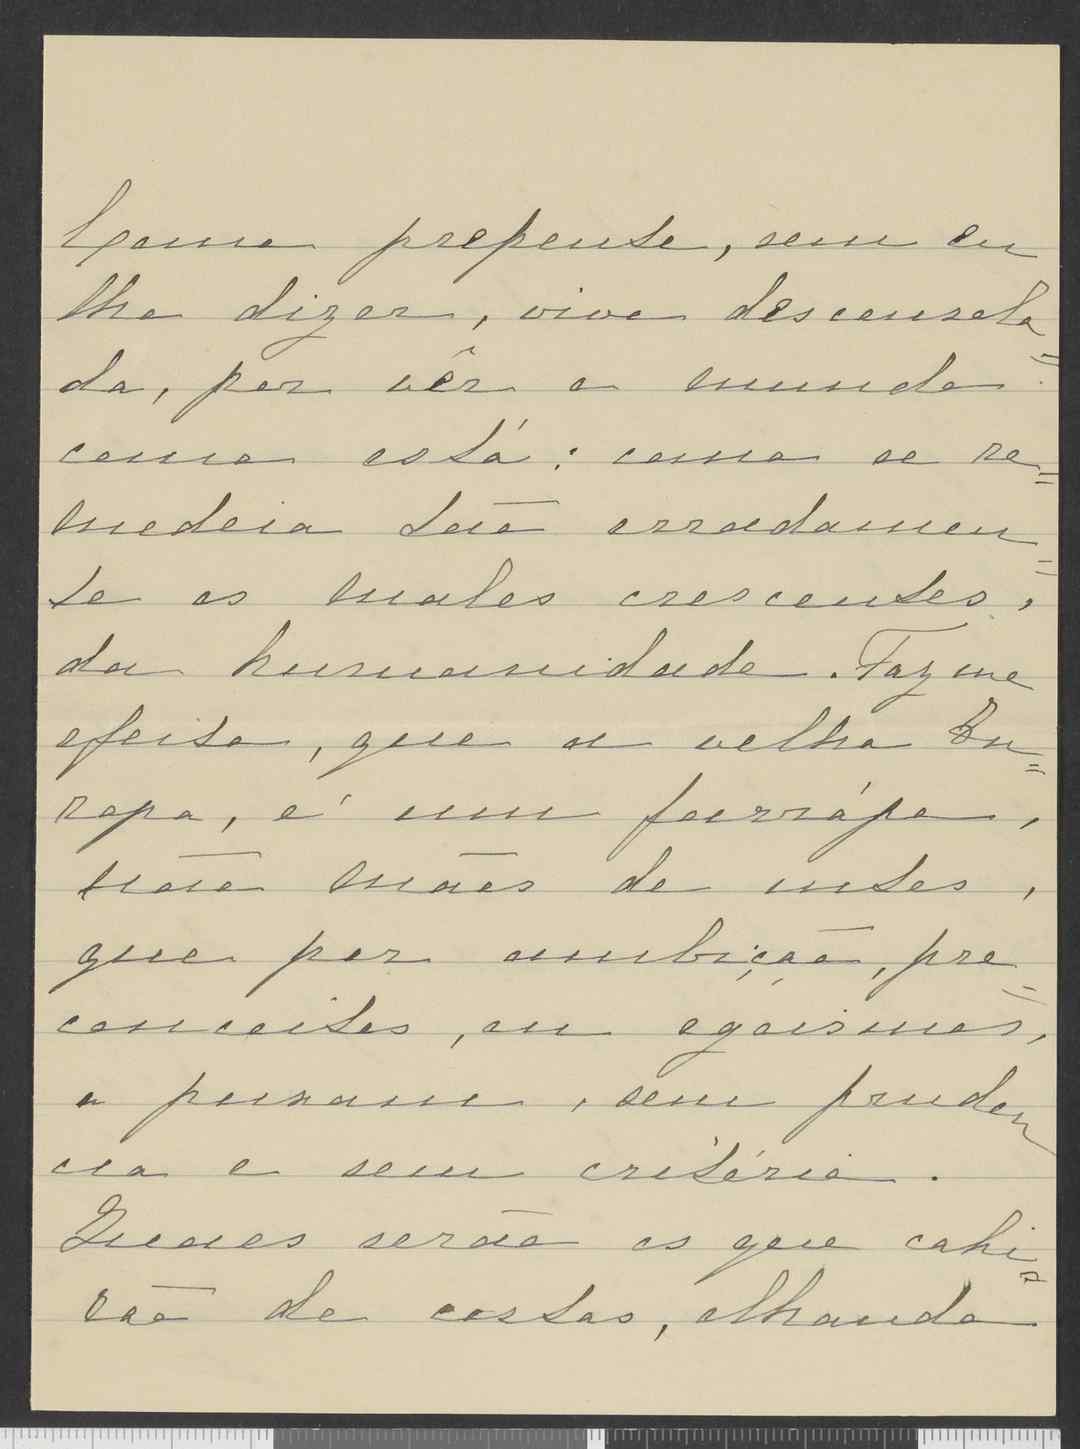 Como prepense, sem eu
lho dizer, vivo desconsola=
da, por vêr o mundo
como está: como se re=
medeia tão erradamen=
te os males crescentes,
da humanidade. Faz me
efeito, que a velha Eu=
ropa, é um farrápo,
nas mãos de ..., 
que por ambição, pre=
conceitos, ou egoismos,
o puxam, sem pruden
cia e sem critério.
Quaes serão os que cahi=
rão de costas, olhando